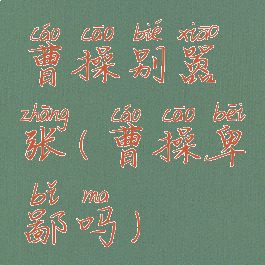 cáo cāo bié xiāo
曹操别嚣
zhāng cáo cāo bēi
张(曹操卑
bǐ ma
鄙吗)